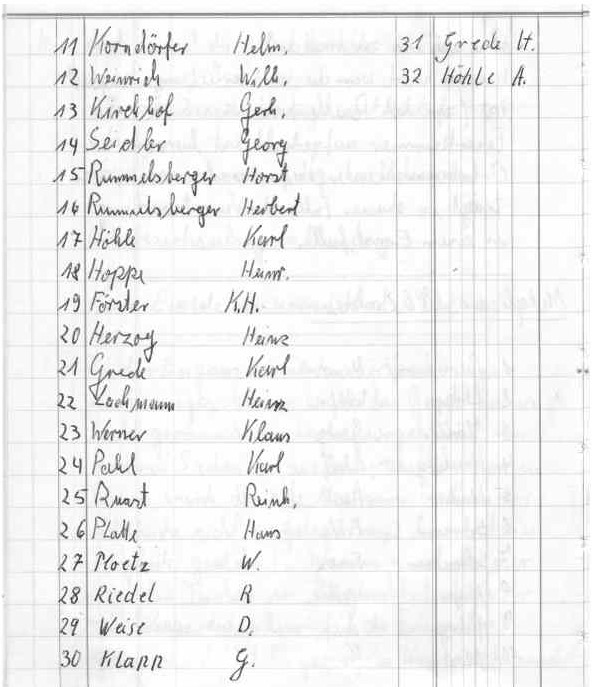 11 Korndörfer Helm. 31 Grede H.
12 Weinrich Wilh. 32 Höhle A.
13 Kirchhof Gerh.
14 Seidler Georg
15 Rummelsberger Horst
16 Rummelsberger Herbert
17 Höhle Karl
18 Hoppe Heinr.
19 Förster K.H.
20 Herzog Heinz
21 Grede Karl
22 Lachmann Heinz
23 Werner Klaus
24 Pahl Karl
25 Reinh.
26 Platte Hans
27 Ploetz W.
28 Riedel R
29 Weise D.
30 Klapp G.